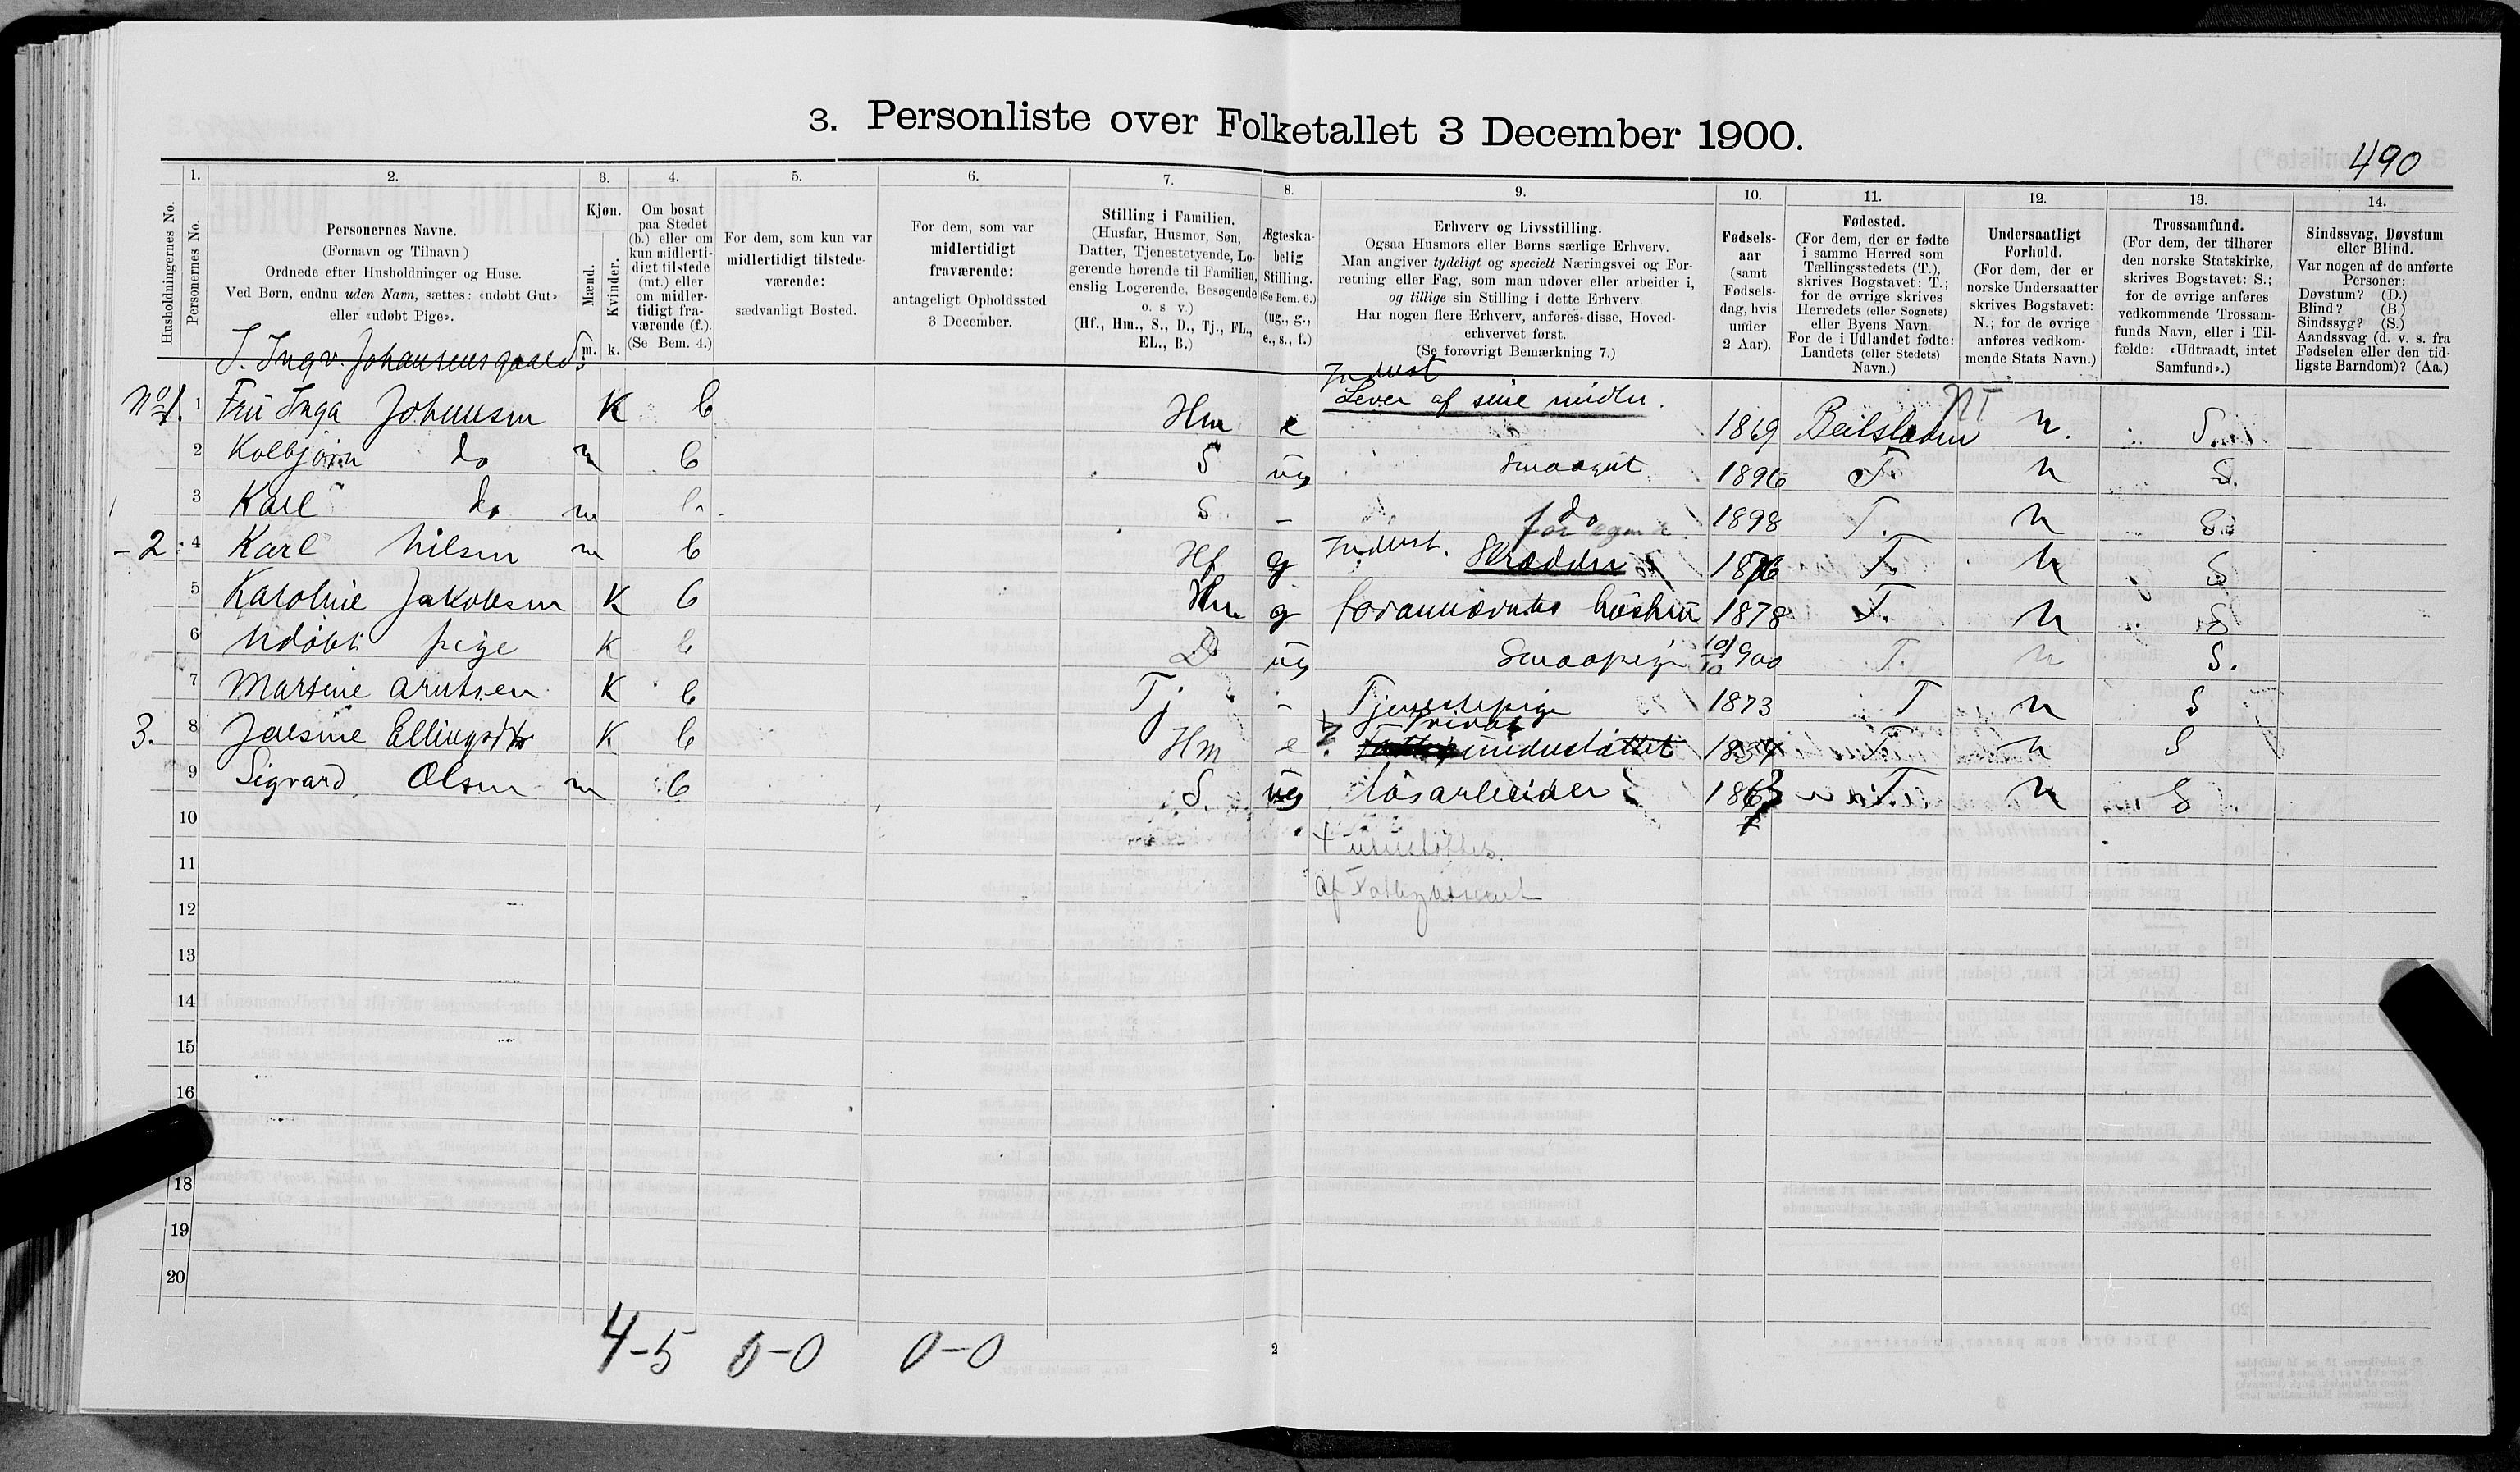 3. Personliste over Folketallet 3 December 1900.
490
Husholdningernes No.
1.
Personernes No.
2.
Personernes Navne.
(Fornavn og Tilnavn)
Ordnede efter Husholdninger og Huse.
Ved Børn, endnu uden Navn, sættes: «udøbt Gut»
eller «udøbt Pige».
3.
Kjøn.
Mænd.
Kvinder.
m. k.
4.
Om bosat
paa Stedet
(b.) eller om
kun midlerti-
digt tilstede
(mt.) eller
om midler-
tidigt fra-
værende (f.).
(Se Bem. 4.)
5.
For dem, som kun var
midlertidigt tilstede-
værende:
sædvanligt Bosted.
6.
For dem, som var
midlertidigt
fraværende:
antageligt Opholdssted
3 December.
7.
Stilling i Familien.
(Husfar, Husmor, Søn,
Datter, Tjenestetyende, Lo-
gerende hørende til Familien,
enslig Logerende, Besøgende
o. s. v.)
(Hf., Hm., S., D., Tj., FL.,
EL., B.)
8.
Ægteska-
belig
Stilling.
(Se Bem. 6.)
(ug., g.,
e., s., f.)
9.
Erhverv og Livsstilling.
Ogsaa Husmors eller Børns særlige Erhverv.
Man angiver tydeligt og specielt Næringsvei og For-
retning eller Fag, som man udøver eller arbeider i,
og tillige sin Stilling i dette Erhverv.
Har nogen flere Erhverv, anføres disse, Hoved-
erhvervet først.
(Se forøvrigt Bemærkning 7.)
10.
Fødsels-
aar
(samt
Fødsels-
dag, hvis
under
2 Aar).
11.
Fødested.
(For dem, der er fødte
i samme Herred som
Tællingsstedets (T.),
skrives Bogstavet: T.;
for de øvrige skrives
Herredets (eller Sognets)
eller Byens Navn.
For de i Udlandet fødte:
Landets (eller Stedets)
Navn.)
12.
Undersaatligt
Forhold.
(For dem, der er
norske Undersaatter
skrives Bogstavet:
N.; for de øvrige
anføres vedkom-
mende Stats Navn.)
13.
Trossamfund.
(For dem, der tilhører
den norske Statskirke,
skrives Bogstavet: S.;
for de øvrige anføres
vedkommende Trossam-
funds Navn, eller i Til-
fælde: «Udtraadt, intet
Samfund».)
14.
Sindssvag, Døvstum
eller Blind.
Var nogen af de anførte
Personer:
Døvstum? (D.)
Blind? (B.)
Sindssyg? (S.)
Aandssvag (d. v. s. fra
Fødselen eller den tid-
ligste Barndom)? (Aa.)
J. Ingv. Johansensgaard
No 1. 1 Fru Inga Johansen K b Hm e Indust Lever af sine midler. 1869 Beitstaden NT n. S.
2 Kolbjørn do m b S ug Smaagut 1896 T. n S.
3 Karl do m b. S. - do 1898 T. n S.
- 2 4 Karl Nilsen m b Hf g Indust. for egen Skrædder 1876 T n S
5 Karoline Jakobsen K b Hm g forannævntes hustru 1878 T. n S
6 Udøbt pige K b D ug Smaapige 10/10 900 T. n S.
7 Martine Arntsen K b Tj - Tjenestepige 1873 T n S
3. 8 Jaksine Ellingsdtr K b Hm e Privat understøttet 1834 T. n S
9 Sigvard Olsen m b S. ug løsarbeider 1863 T. n S
10
+ understøttes
11
af Fattigvæsenet
12
13
14
15
16
18
19
20
4-5 0-0 0-0
2